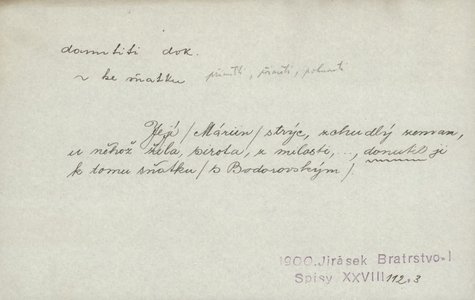 donutiti dok.
~ ke sňatku přinutiti, přiměti, pohnouti
Její /Máriin/ strýc, zchudlý zeman,
u něhož žila, sirota, z milosti, .., donutil ji
k tomu sňatku /s Bodorovským/.
1900. Jirásek Bratrstvo-I
Spisy XXVIII 112.3